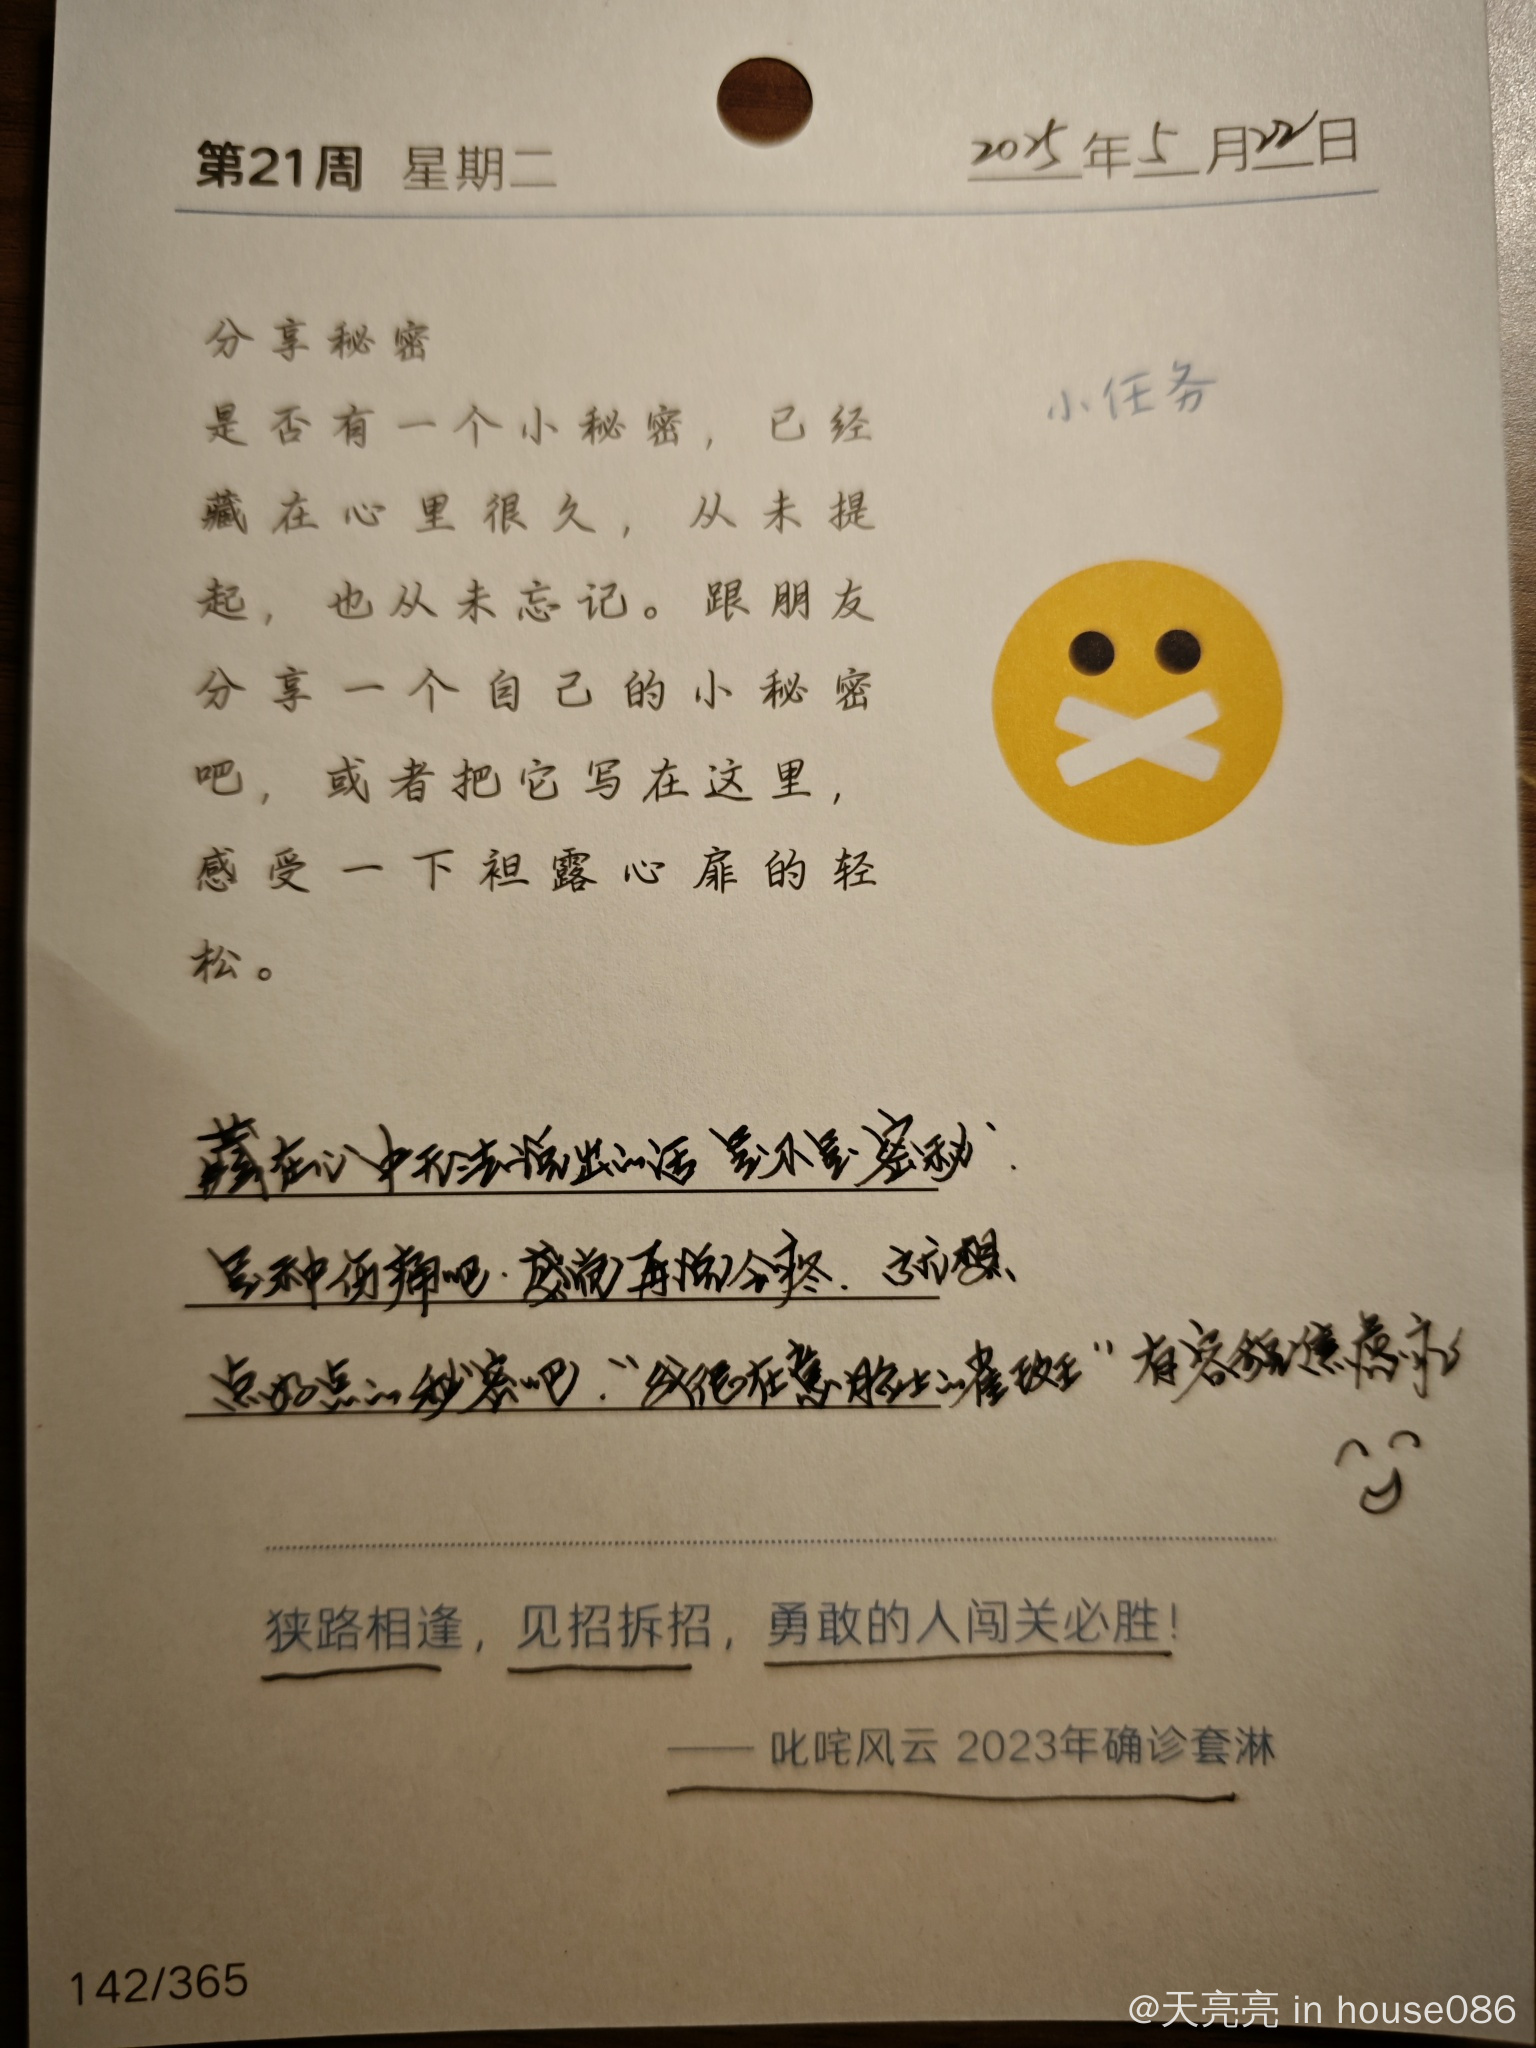 第21周 星期二 2025年5月22日
分享秘密
小任务
是否有一个小秘密，已经
藏在心里很久，从未提
起，也从未忘记。跟朋友
分享一个自己的小秘密
吧，或者把它写在这里，
感受一下袒露心扉的轻
松。
藏在心中无法说出的话 是不是密秘.
是种伤痛吧.感觉再说会疼.
点好点的秘密吧."在意脸上的雀斑"有容貌焦虑
狭路相逢，见招拆招，勇敢的人闯关必胜！
—— 叱咤风云 2023年确诊套淋
142/365
@天亮亮 in house086